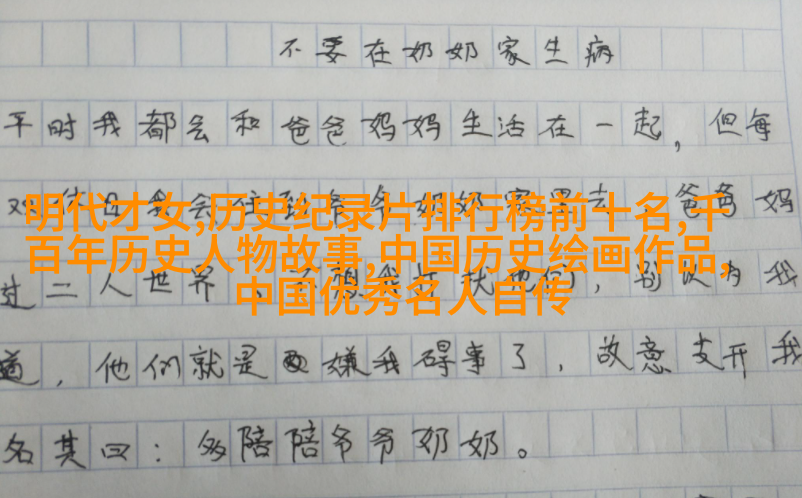 不要在奶奶家生病
平时我都会和爸爸妈妈生活在一起，但每
爸爸妈
明代才女,历史纪录片排行榜前十名,千
百年历史人物故事,中国历史绘画作品,
中国优秀名人自传
过二人世界，别以为我
道，他们就是嫌我碍事了，故意支开我
名其曰：多陪陪爷爷奶奶。